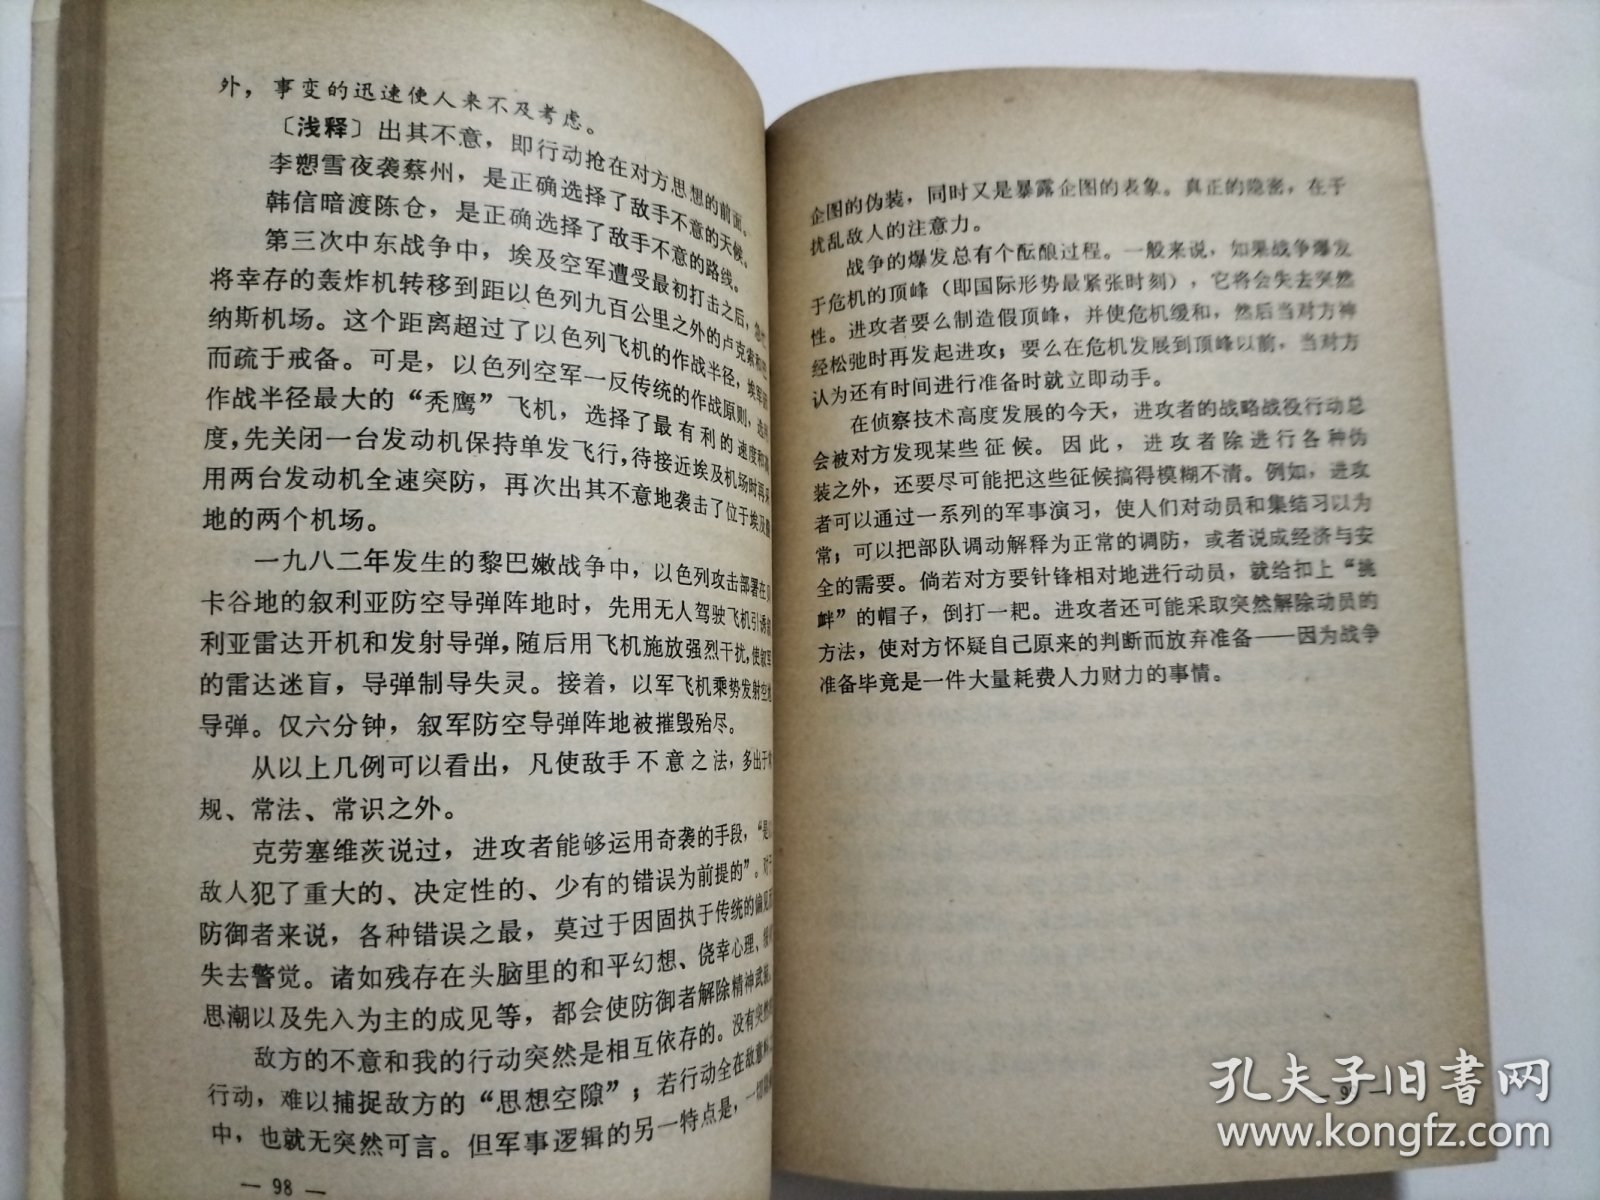 外，事变的迅速使人来不及考虑。
〔浅释〕出其不意，即行动抢在对方思想的前面。
李愬雪夜袭蔡州，是正确选择了敌手不意的天候。
韩信暗渡陈仓，是正确选择了敌手不意的路线。
第三次中东战争中，埃及空军遭受最初打击之后，急忙
将幸存的轰炸机转移到距以色列九百公里之外的卢克索和
纳斯机场。这个距离超过了以色列飞机的作战半径，埃军
而疏于戒备。可是，以色列空军一反传统的作战原则，选
作战半径最大的“秃鹰”飞机，选择了最有利的速度和
度，先关闭一台发动机保持单发飞行，待接近埃及机场时再
用两台发动机全速突防，再次出其不意地袭击了位于埃及
地的两个机场。
一九八二年发生的黎巴嫩战争中，以色列攻击部署在贝
卡谷地的叙利亚防空导弹阵地时，先用无人驾驶飞机引诱叙
利亚雷达开机和发射导弹，随后用飞机施放强烈干扰，使叙军
的雷达迷盲，导弹制导失灵。接着，以军飞机乘势发射空地
导弹。仅六分钟，叙军防空导弹阵地被摧毁殆尽。
从以上几例可以看出，凡使敌手不意之法，多出于常
规、常法、常识之外。
克劳塞维茨说过，进攻者能够运用奇袭的手段，“是以
敌人犯了重大的、决定性的、少有的错误为前提的”。对于
防御者来说，各种错误之最，莫过于因固执于传统的偏见而
失去警觉。诸如残存在头脑里的和平幻想、侥幸心理、
思潮以及先入为主的成见等，都会使防御者解除精神武装。
敌方的不意和我的行动突然是相互依存的。没有突然的
行动，难以捕捉敌方的“思想空隙”；若行动全在敌意料之
中，也就无突然可言。但军事逻辑的另一特点是，一切
— 98 —
企图的伪装，同时又是暴露企图的表象。真正的隐密，在于
扰乱敌人的注意力。
战争的爆发总有个酝酿过程。一般来说，如果战争爆发
于危机的顶峰（即国际形势最紧张时刻），它将会失去突然
性。进攻者要么制造假顶峰，并使危机缓和，然后当对方神
经松弛时再发起进攻；要么在危机发展到顶峰以前，当对方
认为还有时间进行准备时就立即动手。
在侦察技术高度发展的今天，进攻者的战略战役行动总
会被对方发现某些征候。因此，进攻者除进行各种伪
装之外，还要尽可能把这些征候搞得模糊不清。例如，进攻
者可以通过一系列的军事演习，使人们对动员和集结习以为
常；可以把部队调动解释为正常的调防，或者说成经济与安
全的需要。倘若对方要针锋相对地进行动员，就给扣上“挑
衅”的帽子，倒打一耙。进攻者还可能采取突然解除动员的
方法，使对方怀疑自己原来的判断而放弃准备——因为战争
准备毕竟是一件大量耗费人力财力的事情。
孔夫子旧书网
www.kongfz.com